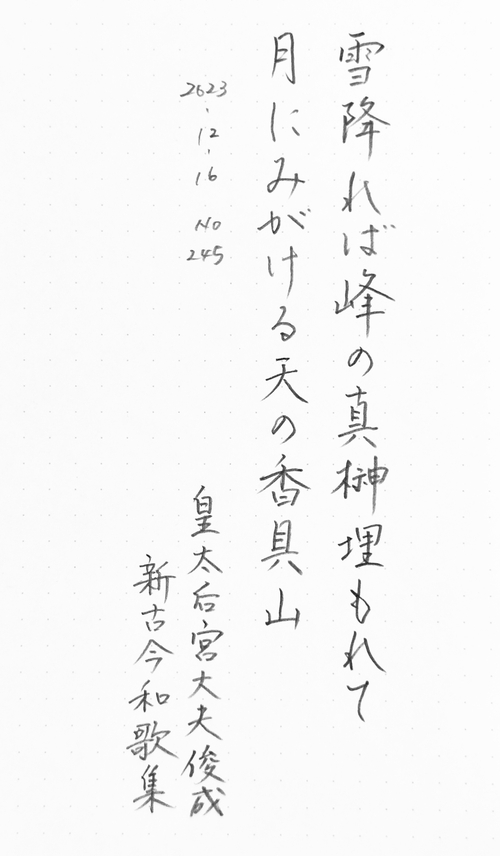 雪降れば峰の真榊埋もれて
月にみがける天の香具山
2623.12.16 No 245
皇太后宮大夫俊成
新古今和歌集